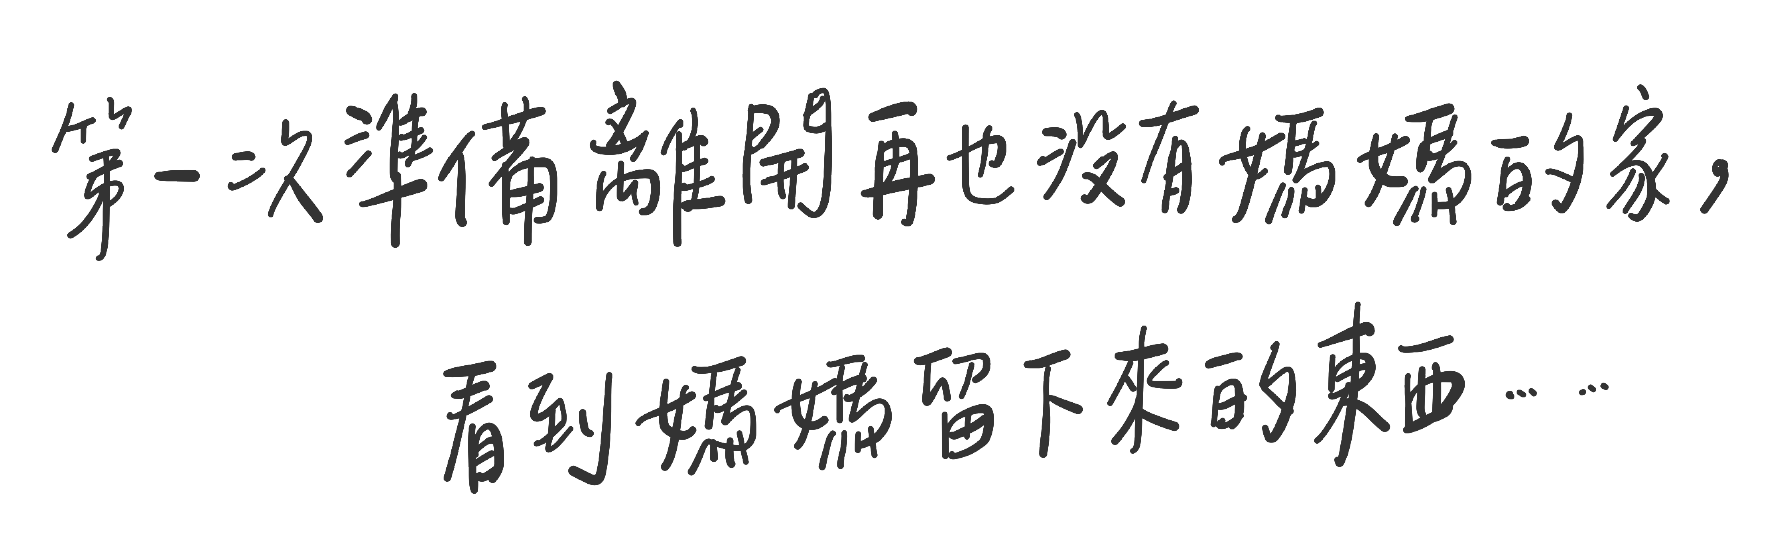 第一次準備離開再也沒有媽媽的家，
看到媽媽留下來的東西……